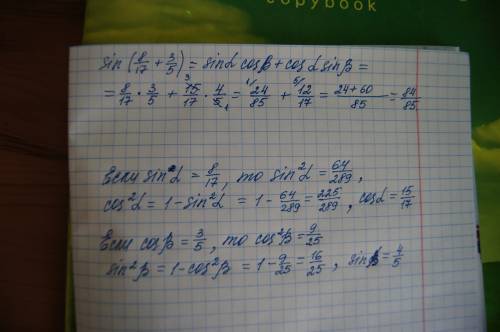 copybook
sin(8/17 + 3/5) = sinα cosβ + cosα sinβ =
= 8/17 · 3/5 + 15/17 · 4/5 = 24/85 + 12/17 = 24+60/85 = 84/85
Если sinα = 8/17, то sin²α = 64/289,
cos²α = 1 - sin²α = 1 - 64/289 = 225/289, cosα = 15/17
Если cosβ = 3/5, то cos²β = 9/25
sin²β = 1 - cos²β = 1 - 9/25 = 16/25, sinβ = 4/5